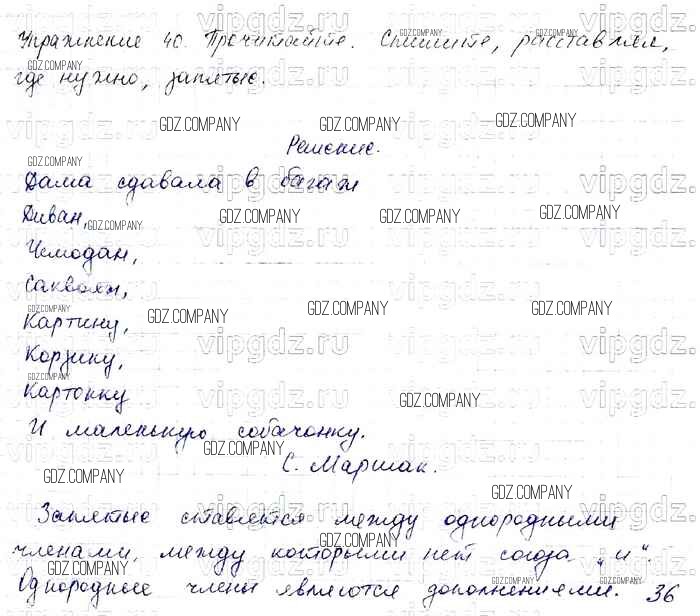 Упражнение 40. Прочитайте. Спишите, расставляя,
где нужно, запятые.
Решение.
Дама сдавала в багаж
Диван,
Чемодан,
Саквояж,
Картину,
Корзину,
Картонку
И маленькую собачонку.
С. Маршак.
Запятые ставятся между однородными
членами, между которыми нет союза „и".
Однородные члены являются дополнениями. 36